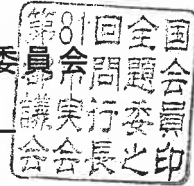 委員会
第81回全国
問題会
議実行委員
会会長之印